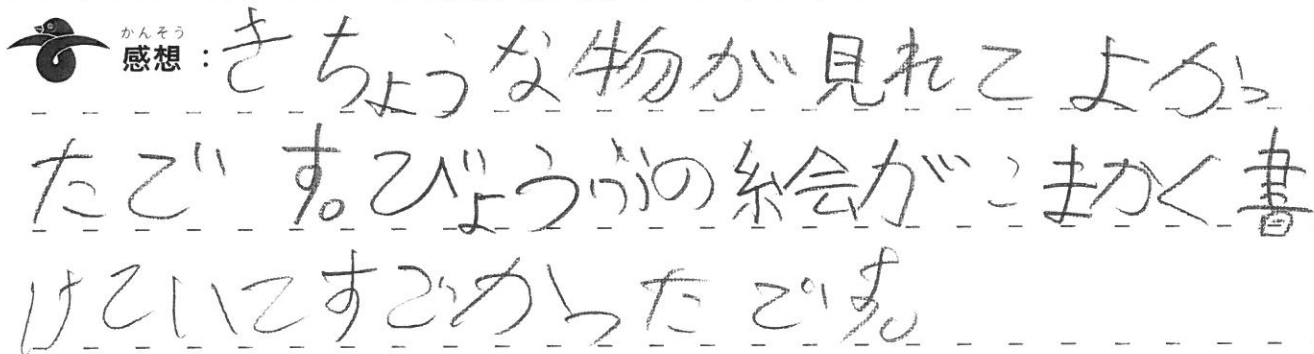 かんそう
感想：きちょうな物が見れてよかっ
たです。びょうぶの絵がこまかく書
けていてすごかったです。